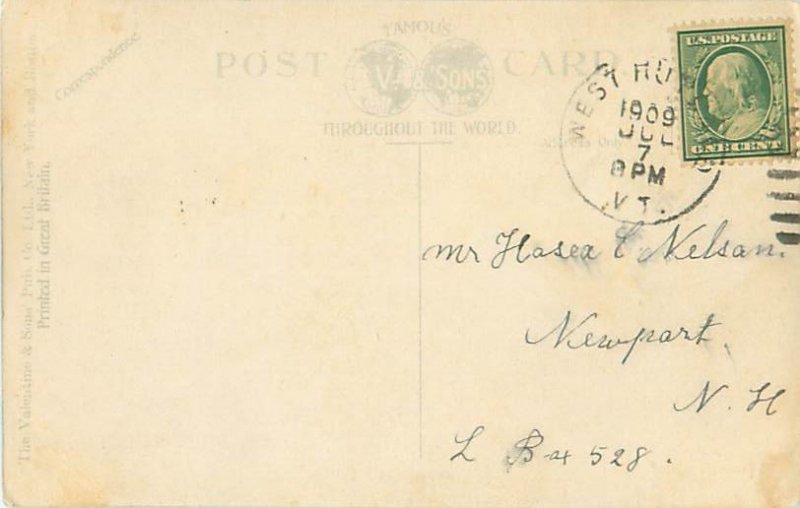 Correspondence
FAMOUS
POST CARD
V. & SONS
THROUGHOUT THE WORLD.
Address Only
The Valentine & Sons' Pub. Co. Ltd., New York and Boston
Printed in Great Britain.
U.S. POSTAGE
ONE CENT
WEST RU
1909
JUL
7
8 PM
VT.
Mr Hosea C Nelson.
Newport,
N. H
L Box 528.